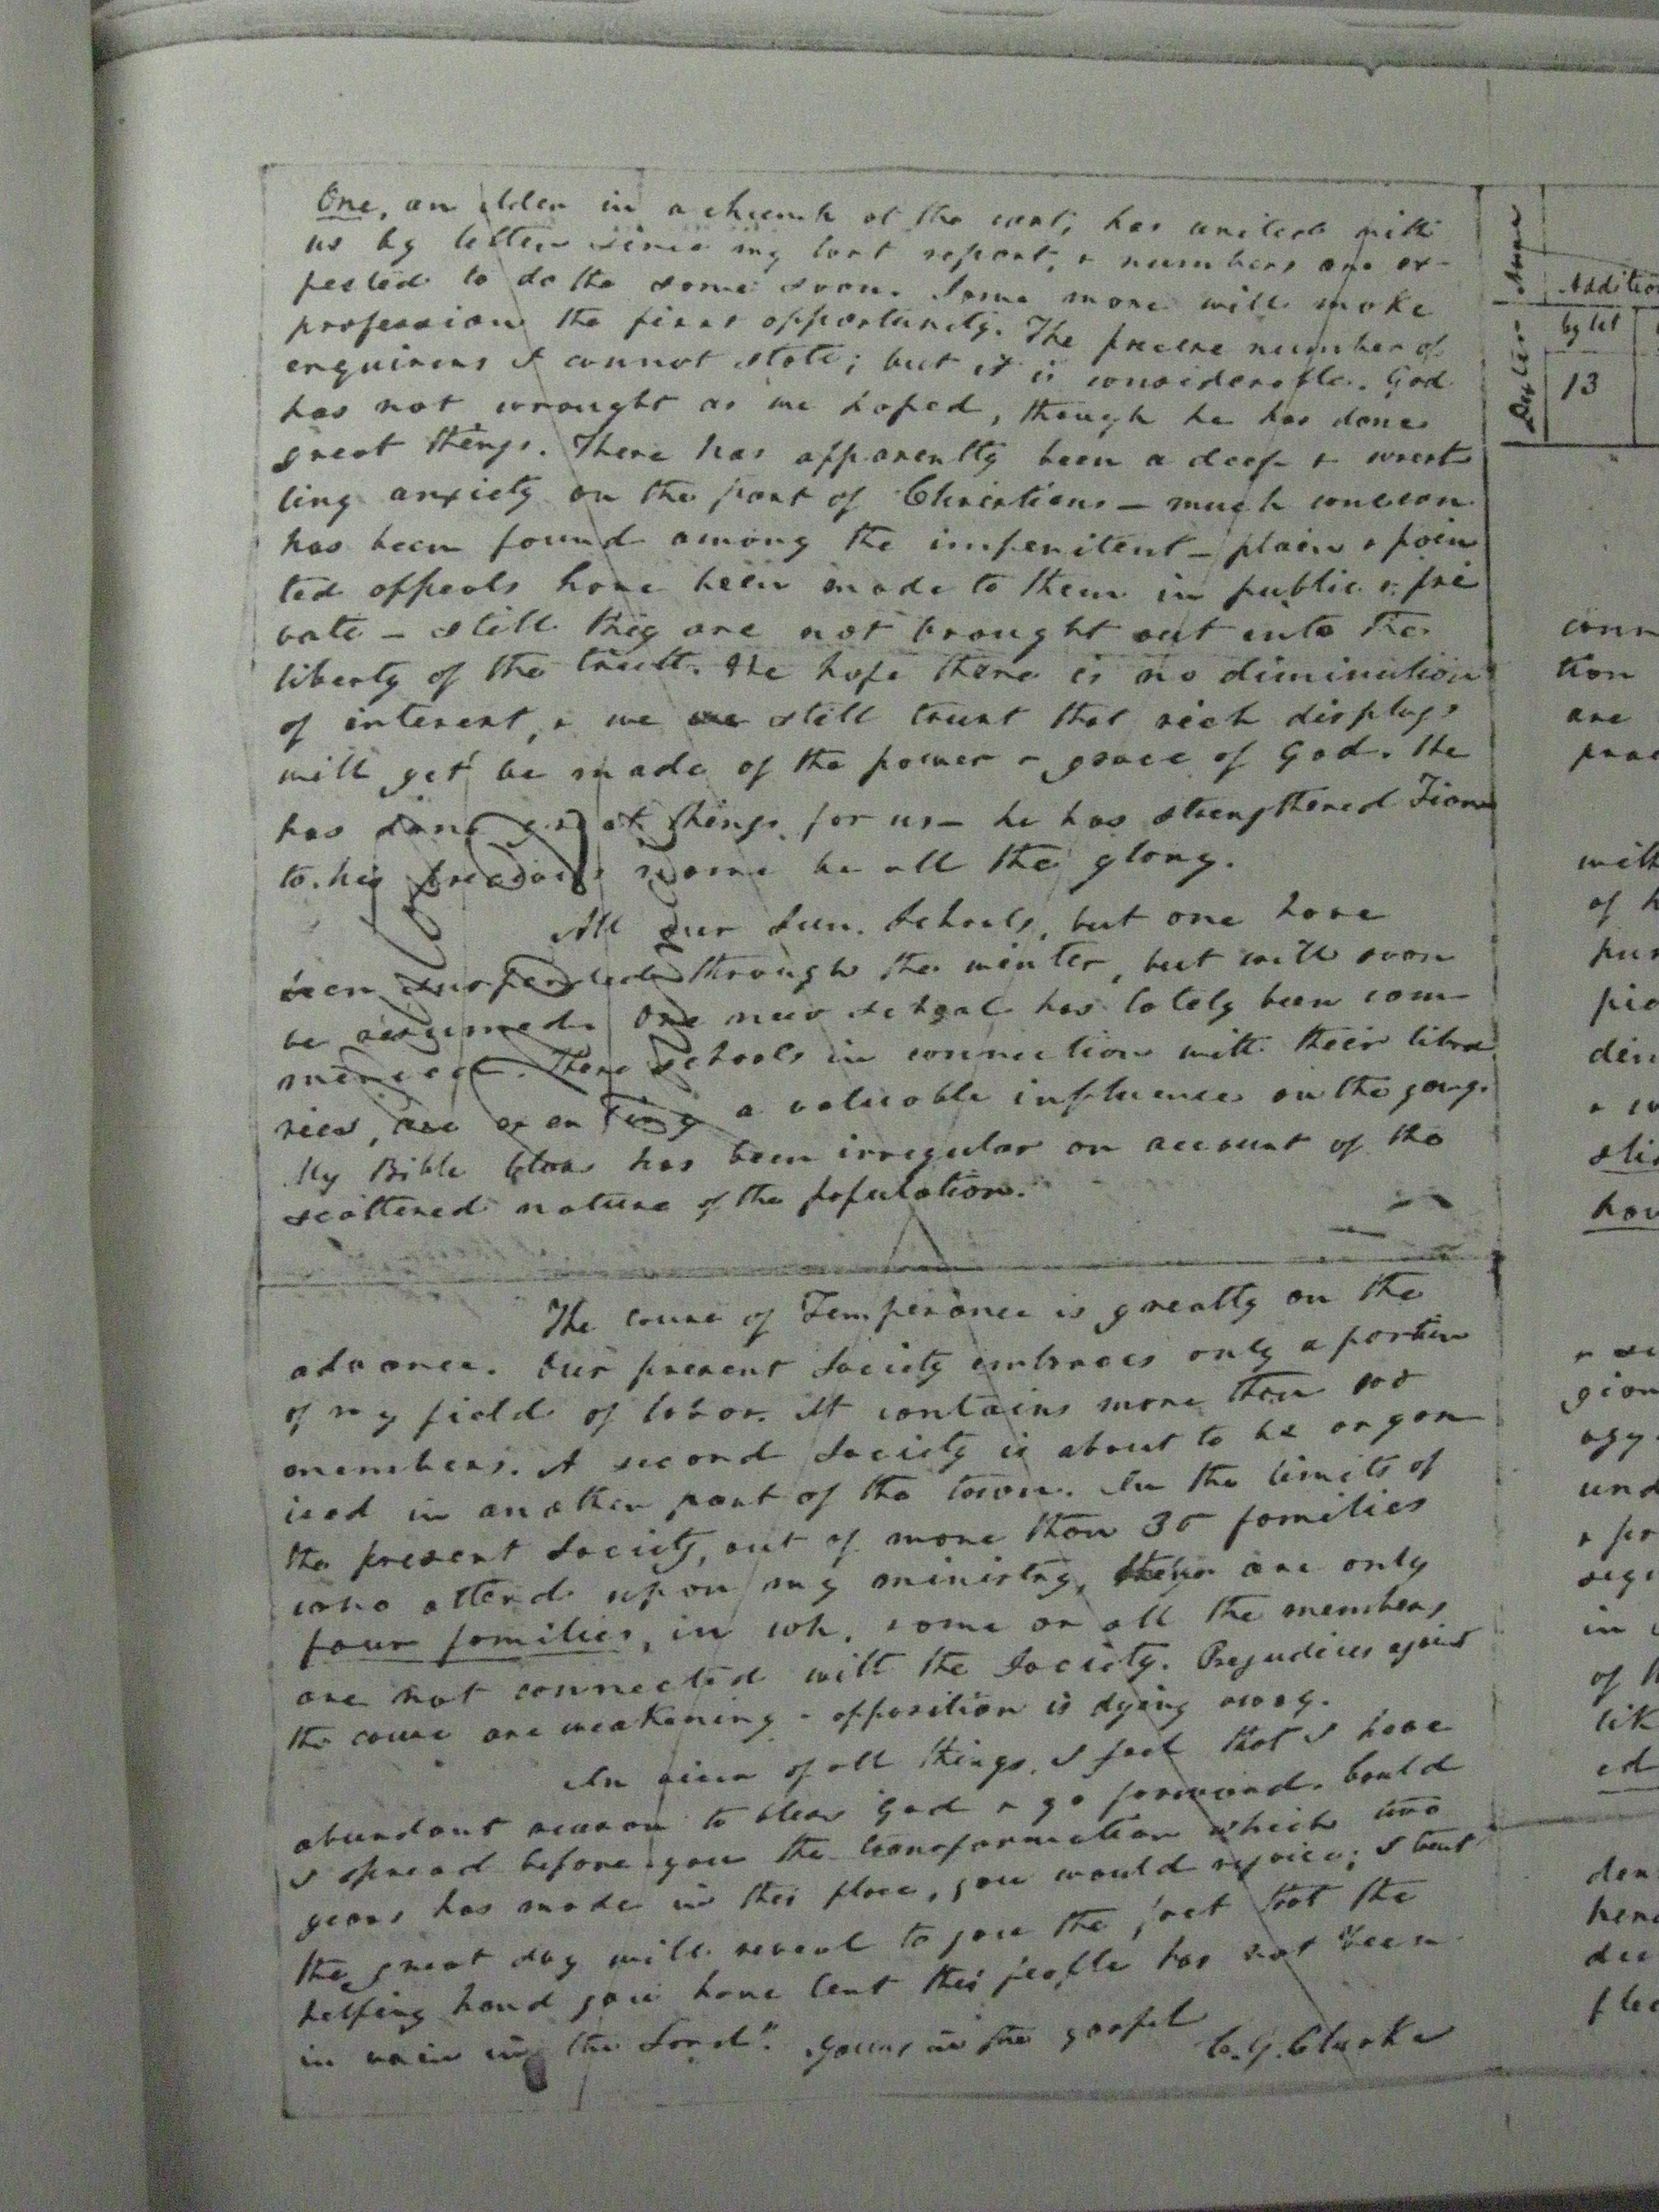 One, an elder in a church at the east, has united with
us by letter since my last report, & numbers are ex-
pected to do the same soon. Some more will make
profession the first opportunity. The precise number of
enquirers I cannot state; but it is considerable. God
has not wrought as we hoped, though he has done
great things. There has apparently been a deep & wrest
ling anxiety on the part of Christians — much concern
has been found among the impenitent — plain & poin
ted appeals have been made to them in public & pri
vate — still they are not brought out into the
liberty of the truth. We hope there is no diminution
of interest, & we still trust that rich displays
will yet be made of the power & grace of God. He
has done great things for us — he has strengthened Zion
to his precious name be all the glory.
All our Sun. Schools, but one have
been suspended through the winter, but will soon
be resumed. One new school has lately been com-
menced. These schools in connection with their libra
ries, are exerting a valuable influence on the young.
My Bible Class has been irregular on account of the
scattered nature of the population.
The cause of Temperance is greatly on the
advance. Our present Society embraces only a portion
of my field of labor. It contains more than
members. A second Society is about to be organ
ised in another part of the town. In the limits of
the present Society, out of more than 30 families
who attend upon my ministry, there are only
four families, in wh. some or all the members
are not connected with the Society. Prejudices against
the cause are weakening & opposition is dying away.
In view of all things, I feel that I have
abundant reason to bless God & go forward. Could
I spread before you the transformation which two
years has made in this place, you would rejoice; I trust
the great day will reveal to you the fact that the
helping hand you have lent this people has not been
in vain in the Lord". Yours in the gospel
C. G. Clarke
Addition
by let
13
conn
tion
are
prac
with
of h
pur
pio
den
gion
und
& po
in
of h
lik
ed
den